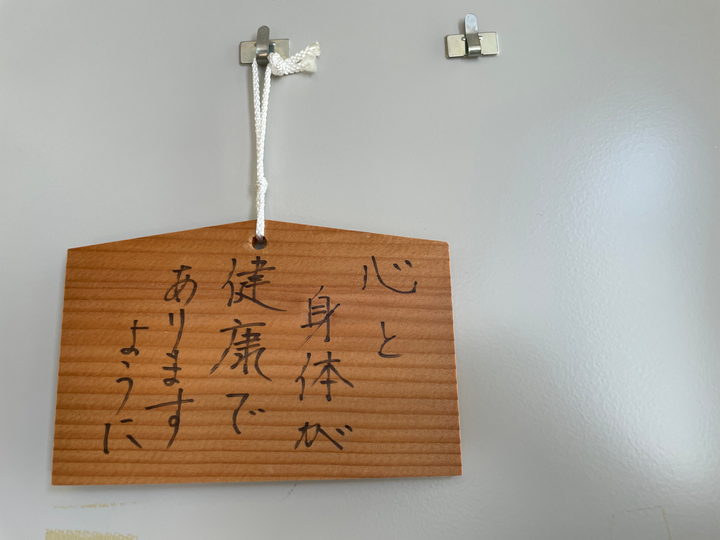 心と
身体が
健康で
あります
ように